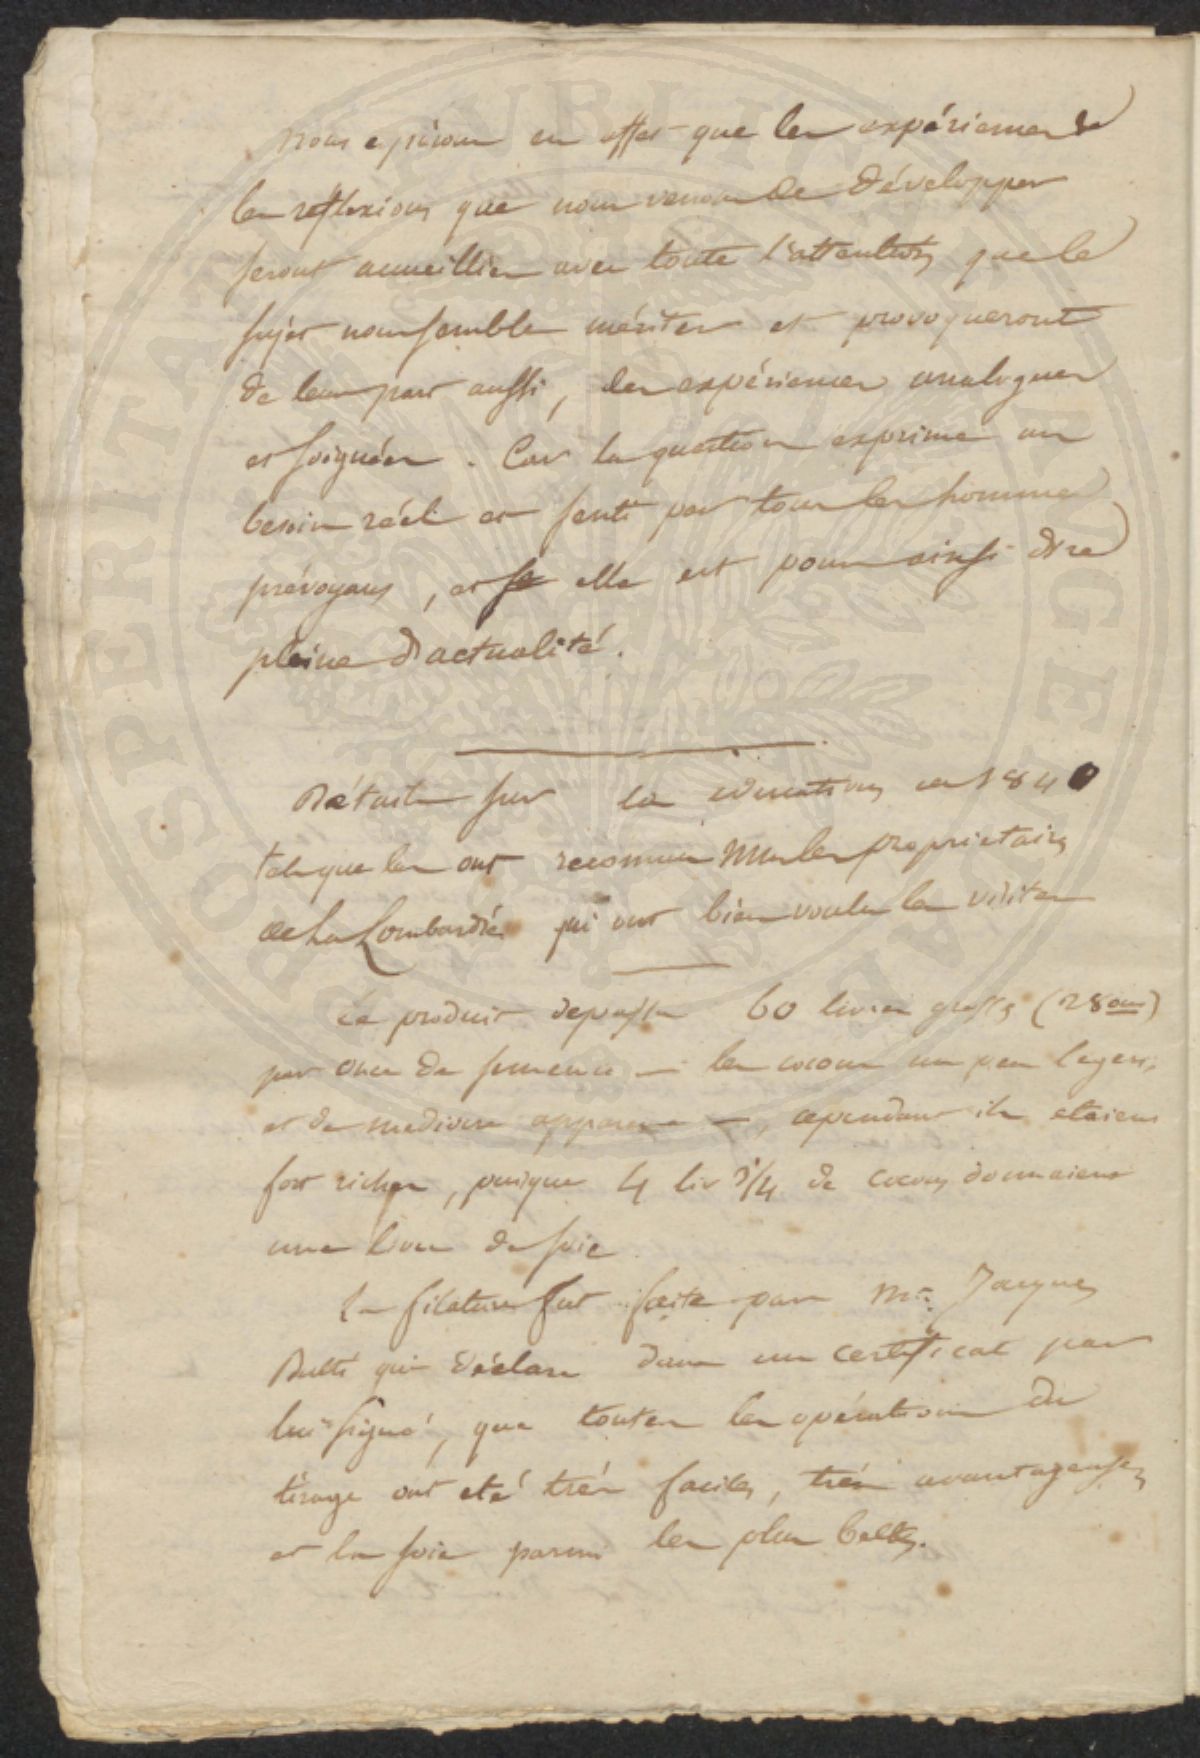 Nous espérons en effet que les expériences &
les reflexions que nous venons de développer
seront accueillies avec toute l'attention que le
sujet nous semble mériter et provoqueront
de leur part aussi, des expériences analogues
et soignées. Car la question exprime un
besoin réel et senti par tous les hommes
prévoyans, et elle est pour ainsi dire
pleine d'actualité.
Détails sur la education en 1840
tels que les ont reconnus MMrs les propriétaires
de la Lombardie qui ont bien voulu la visiter
Le produit depassa 60 livres grosses (28 onces)
par once de semence — les cocons un peu legers,
et de mediocre apparence —, cependant ils etaient
fort riches, puisque 4 liv 3/4 de cocons donnaient
une livre de soie.
La filature fut faite par Mr. Jacques
qui déclare dans un certificat par
lui signé, que toutes les opérations du
tirage ont eté très faciles, très avantageuses
et la soie parmi les plus belles.
PROSPERITATI PUBLICAE AUGENDAE